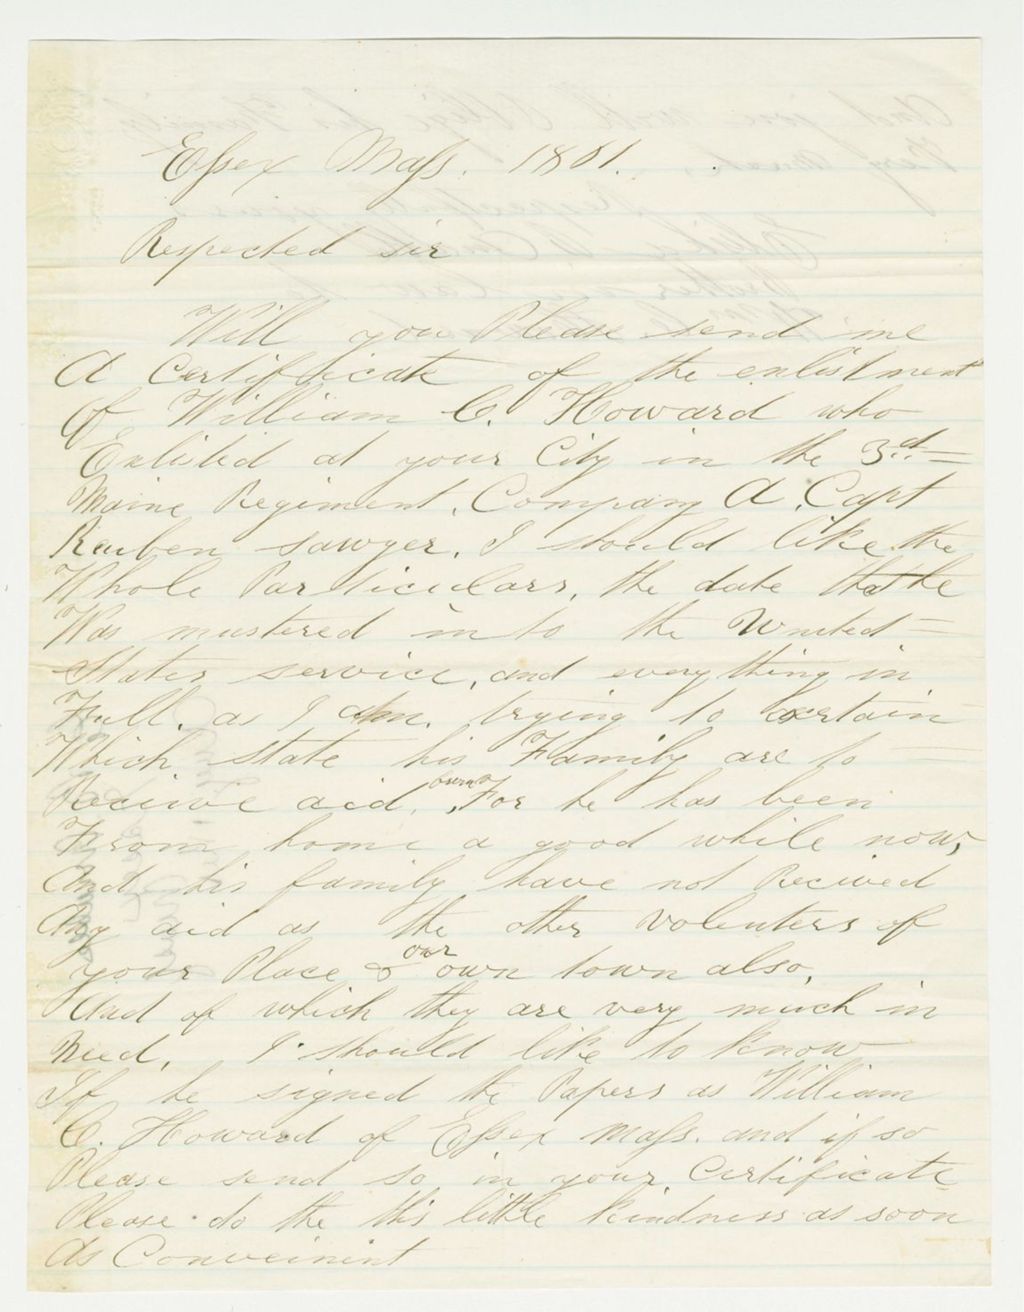 Essex Mass. 1861.
Respected sir
Will you Please send me
A Certificate of the enlistment
Of William C. Howard who
Enlisted at your City in the 3d.
Maine Regiment, Company A, Capt
Reuben sawyer, I should like the
Whole Particulars, the date that he
Was mustered in to the United
States service, and everything in
Full, as I am, trying to
Which state his Family are to
Reciwe aid, For he has been
From home a good while now,
And his family have not Recived
Any aid as the other Volenters of
your Place & our own town also,
And of which they are very much in
Need, I should like to know
If he signed the Papers as William
C. Howard of Essex Mass. and if so
Please send so in your Certificate
Please do the this little kindness as soon
As Conveinint